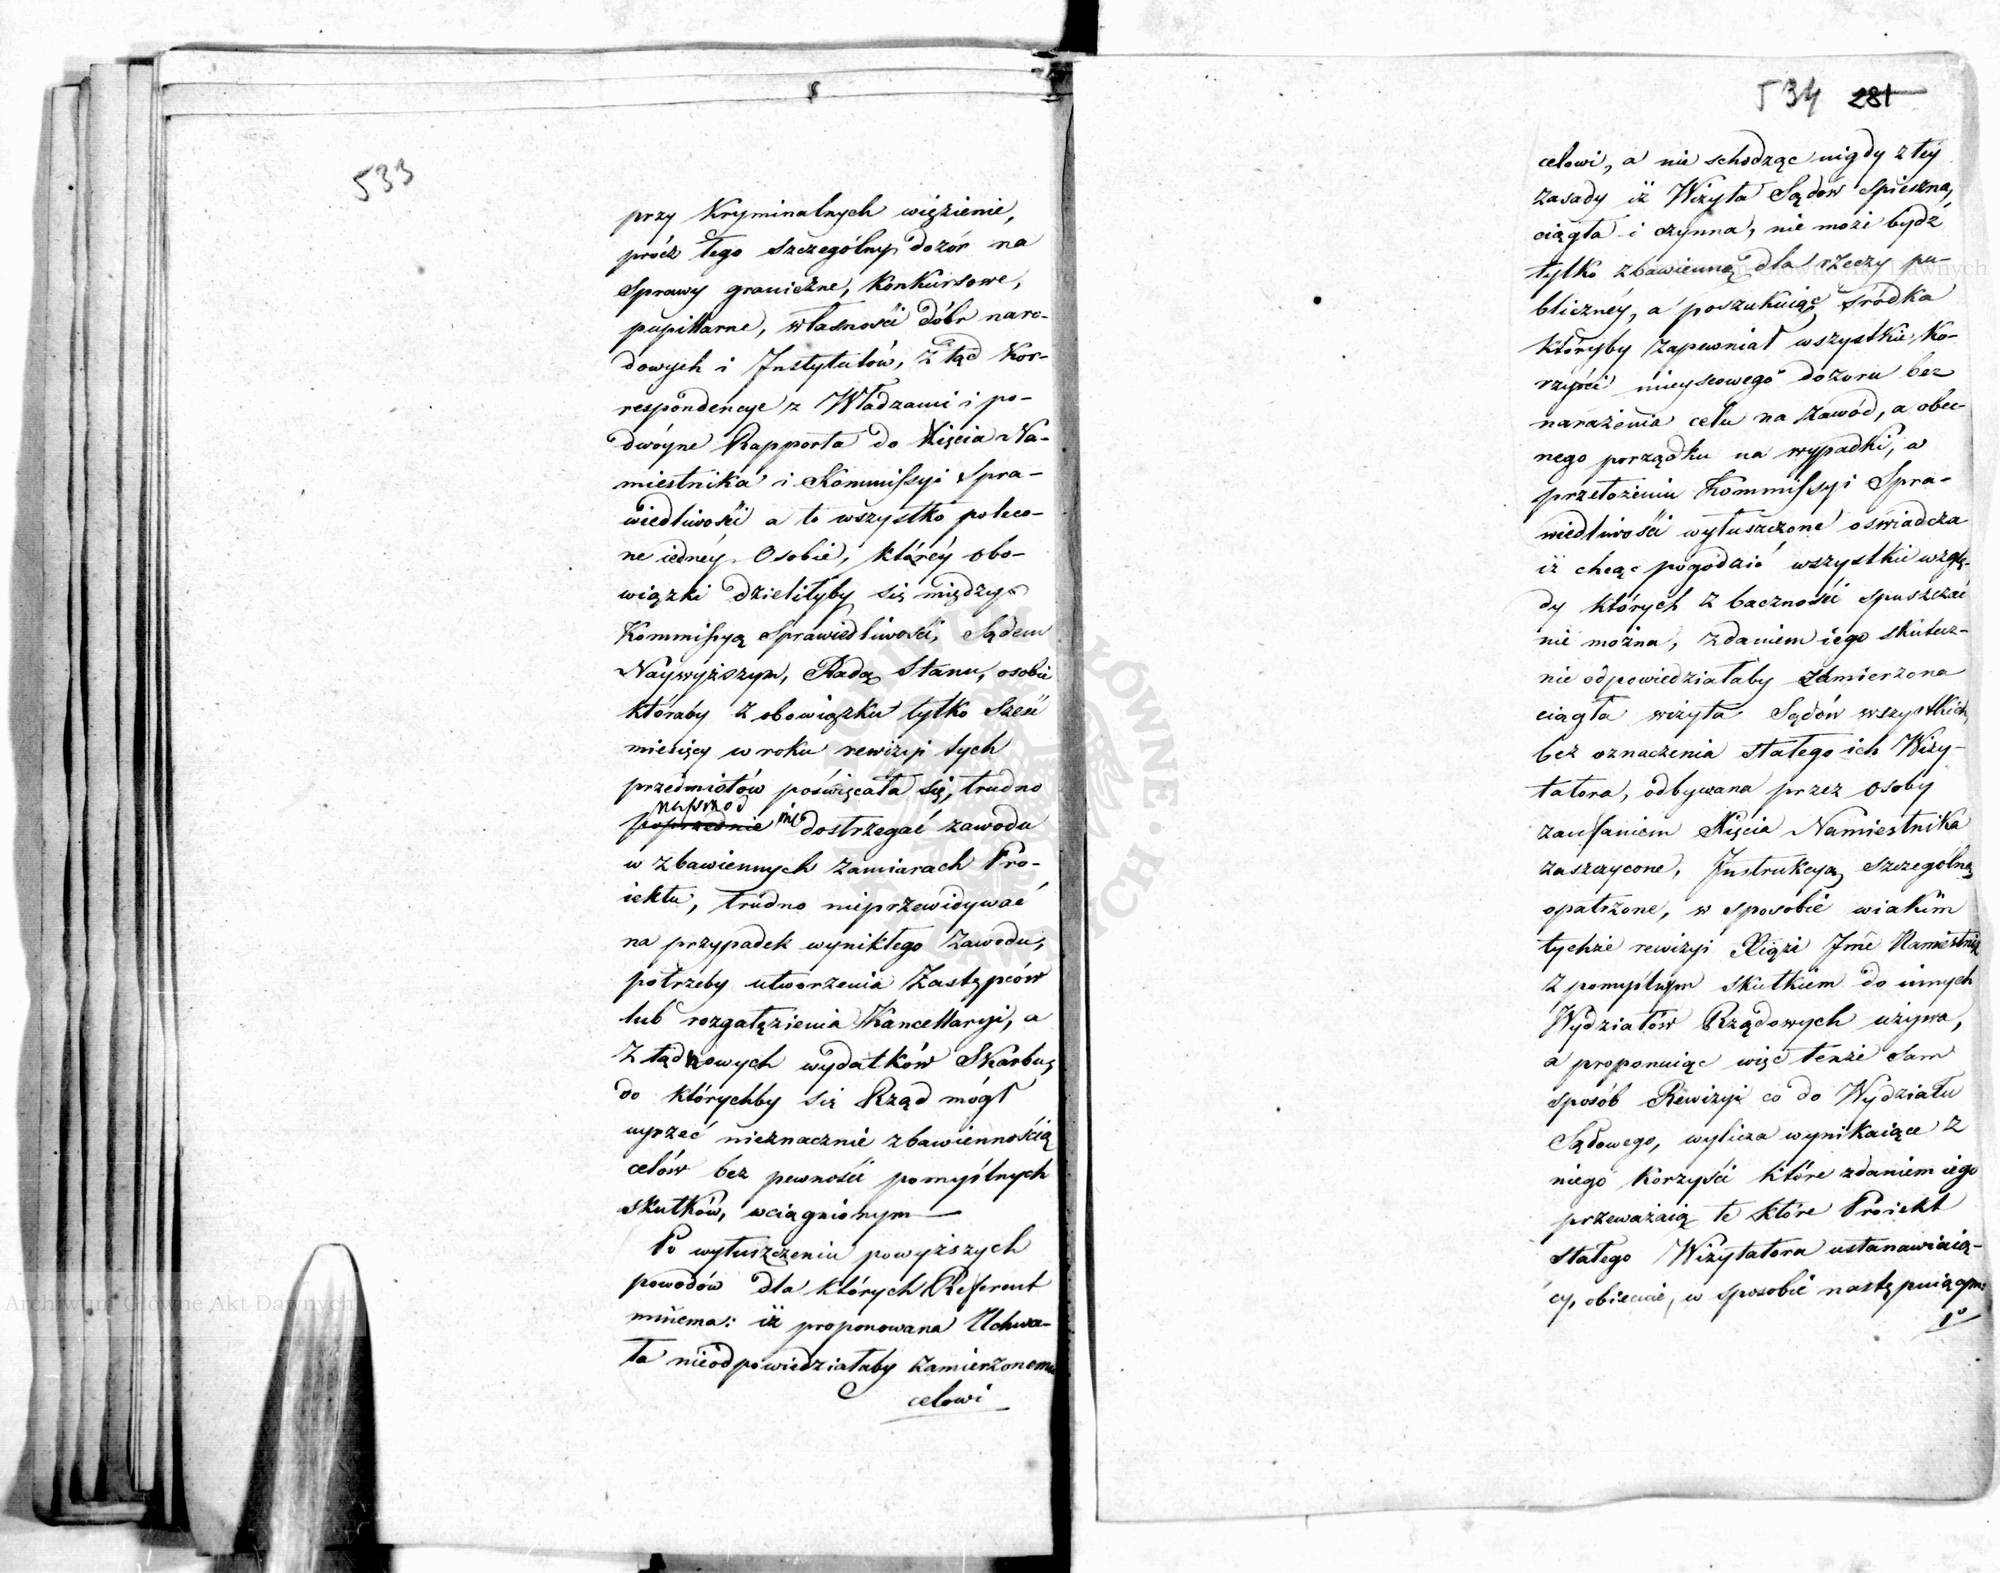 533
przy Kryminalnych więzienie,
prócz tego szczególny dozór na
Sprawy graniczne, Konkursowe,
pupillarne, własności dóbr naro-
dowych i Instytutów, z tąd Kor-
respondencye z Władzami i po-
dwóyne Rapporta do Xięcia Na-
miestnika i Kommissyi Spra-
wiedliwości a to wszystko poleco-
ne iednéy Osobie, któréy obo-
wiązki dzieliłyby się między
Kommissyą Sprawiedliwości, Sądem
Naywyższym, Radą Stanu, osobie
któraby z obowiązku tylko sześć
miesięcy w roku rewizyi tych
przedmiotów poświęcała się, trudno
naprzód
poprzednie nie dostrzegać zawodu
w zbawiennych zamiarach Pro-
iektu, trudno nieprzewidywać
na przypadek wynikłego zawodu,
potrzeby utworzenia Zastępców
lub rozgałęzienia Kancellaryi, a
z tąd nowych wydatków Skarbu,
do którychby się Rząd mógł
uyrzeć nieznacznie zbawiennością
celów bez pewności pomyślnych
skutków, wciągnionym —
Po wyłuszczeniu powyższych
powodów dla których Referent
mniema: iż proponowana Uchwa-
ła nieodpowiedziałaby zamierzonemu
celowi
534 281
celowi, a nie schodząc nigdy z téy
zasady iż Wizyta Sądów spieszna,
ciągła i czynna, nie może bydź
tylko zbawienną dla rzeczy pu-
blicznéy, a poszukuiąc śródka
któryby zapewniał wszystkie ko-
rzyści mieyscowego dozoru bez
narażenia celu na zawód, a obec-
nego porządku na wypadki, w
przełożeniu Kommissyi Spra-
wiedliwości wyłuszczone oświadcza
iż chcąc pogodzić wszystkie wzglę-
dy których z baczności spuszczać
nie można, zdaniem iego skutecz-
nie odpowiedziałaby zamierzona
ciągła wizyta Sądów wszystkich
bez oznaczenia stałego ich Wizy-
tatora, odbywana przez osoby
zaufaniem Xięcia Namiestnika
zaszczycone, Instrukcyą szczególną
opatrzone, w sposobie w iakim
tychże rewizyi Xiąże Jmć Namiestnik
z pomyślnym skutkiem do innych
Wydziałów Rządowych używa,
a proponuiąc więc tenże sam
sposób Rewizyi co do Wydziału
Sądowego, wylicza wynikaiące z
niego korzyści które zdaniem iego
przeważaią te które Proiekt
stałego Wizytatora ustanawiaią-
cy, obiecuie, w sposobie następuiącym:
1º
Archiwum Główne Akt Dawnych
Archiwum Główne Akt Dawnych